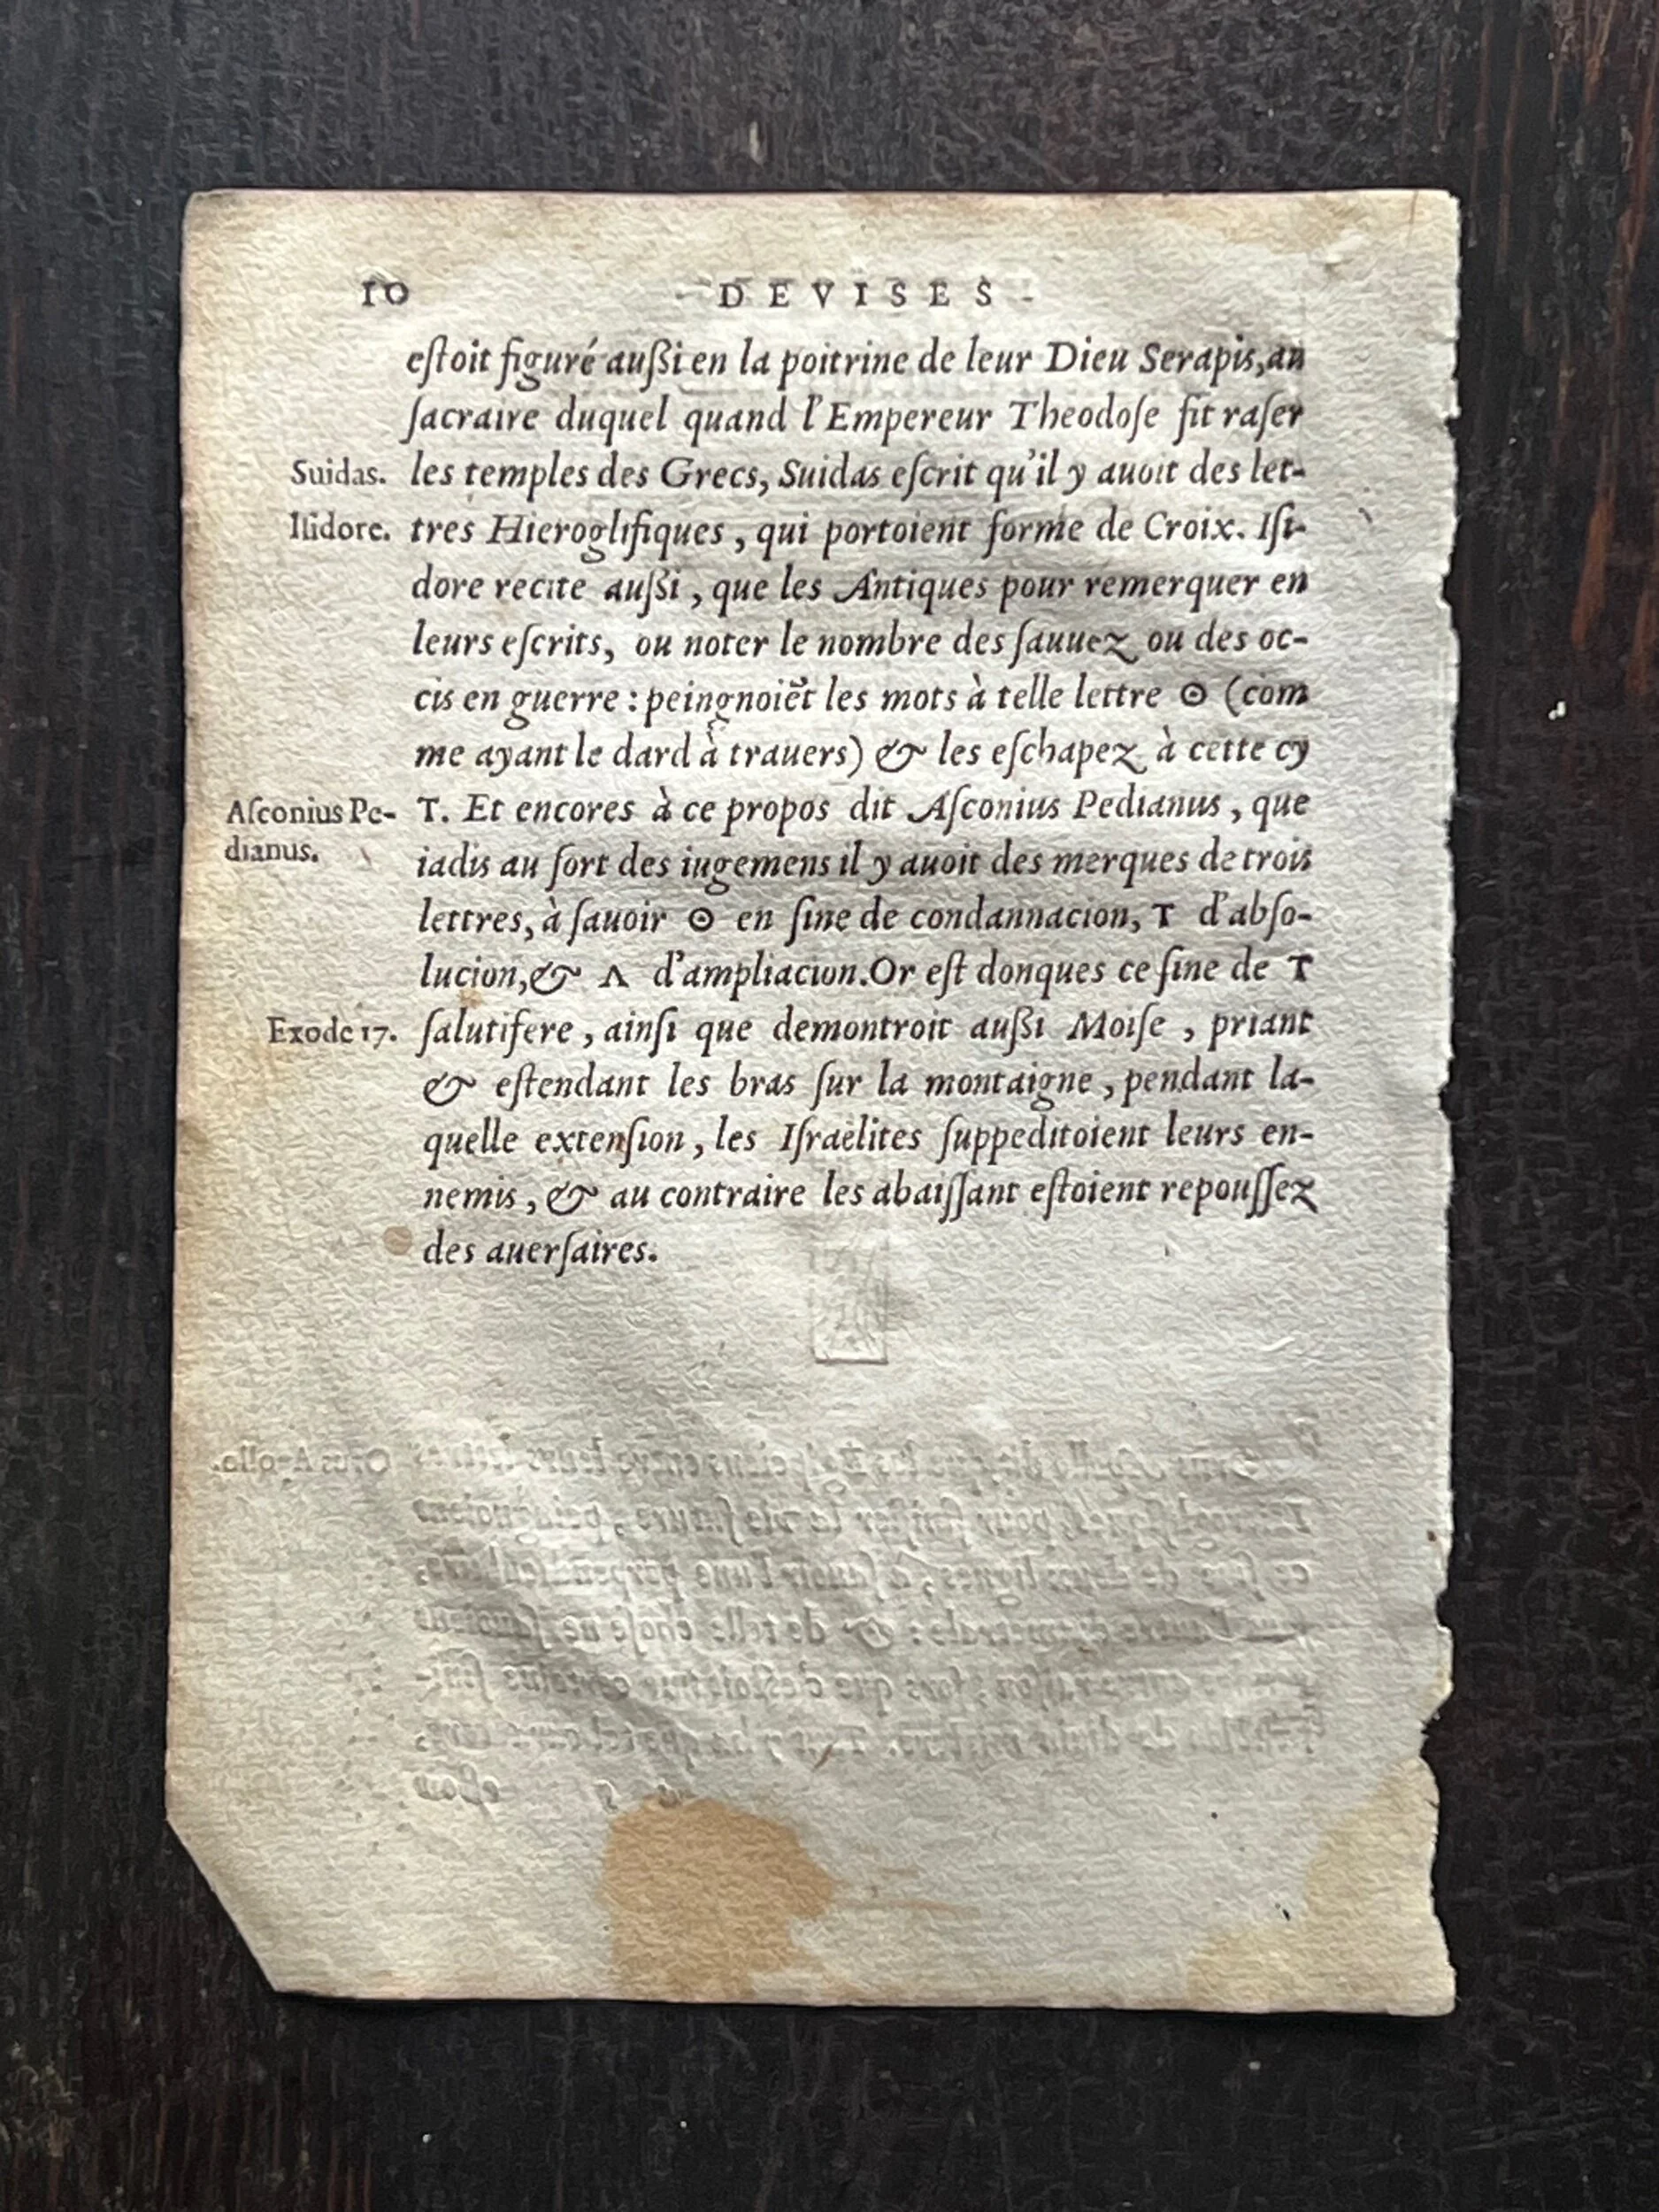 10 DEVISES
eſtoit figuré außi en la poitrine de leur Dieu Serapis, au
ſacraire duquel quand l'Empereur Theodoſe fit raſer
Suidas. les temples des Grecs, Suidas eſcrit qu'il y auoit des let-
Iſidore. tres Hieroglifiques, qui portoient forme de Croix. Iſi-
dore recite außi, que les Antiques pour remerquer en
leurs eſcrits, ou noter le nombre des ſauuez ou des oc-
cis en guerre: peingnoiēt les mots à telle lettre ʘ (com
me ayant le dard à trauers) & les eſchapez à cette cy
Aſconius Pe- T. Et encores à ce propos dit Aſconius Pedianus, que
dianus. iadis au ſort des iugemens il y auoit des merques de trois
lettres, à ſauoir ʘ en ſine de condannacion, T d'abſo-
lucion, & Λ d'ampliacion. Or eſt donques ce ſine de T
Exode 17. ſalutifere, ainſi que demontroit außi Moiſe, priant
& eſtendant les bras ſur la montaigne, pendant la-
quelle extenſion, les Iſraëlites ſuppeditoient leurs en-
nemis, & au contraire les abaiſſant eſtoient repouſſez
des auerſaires.